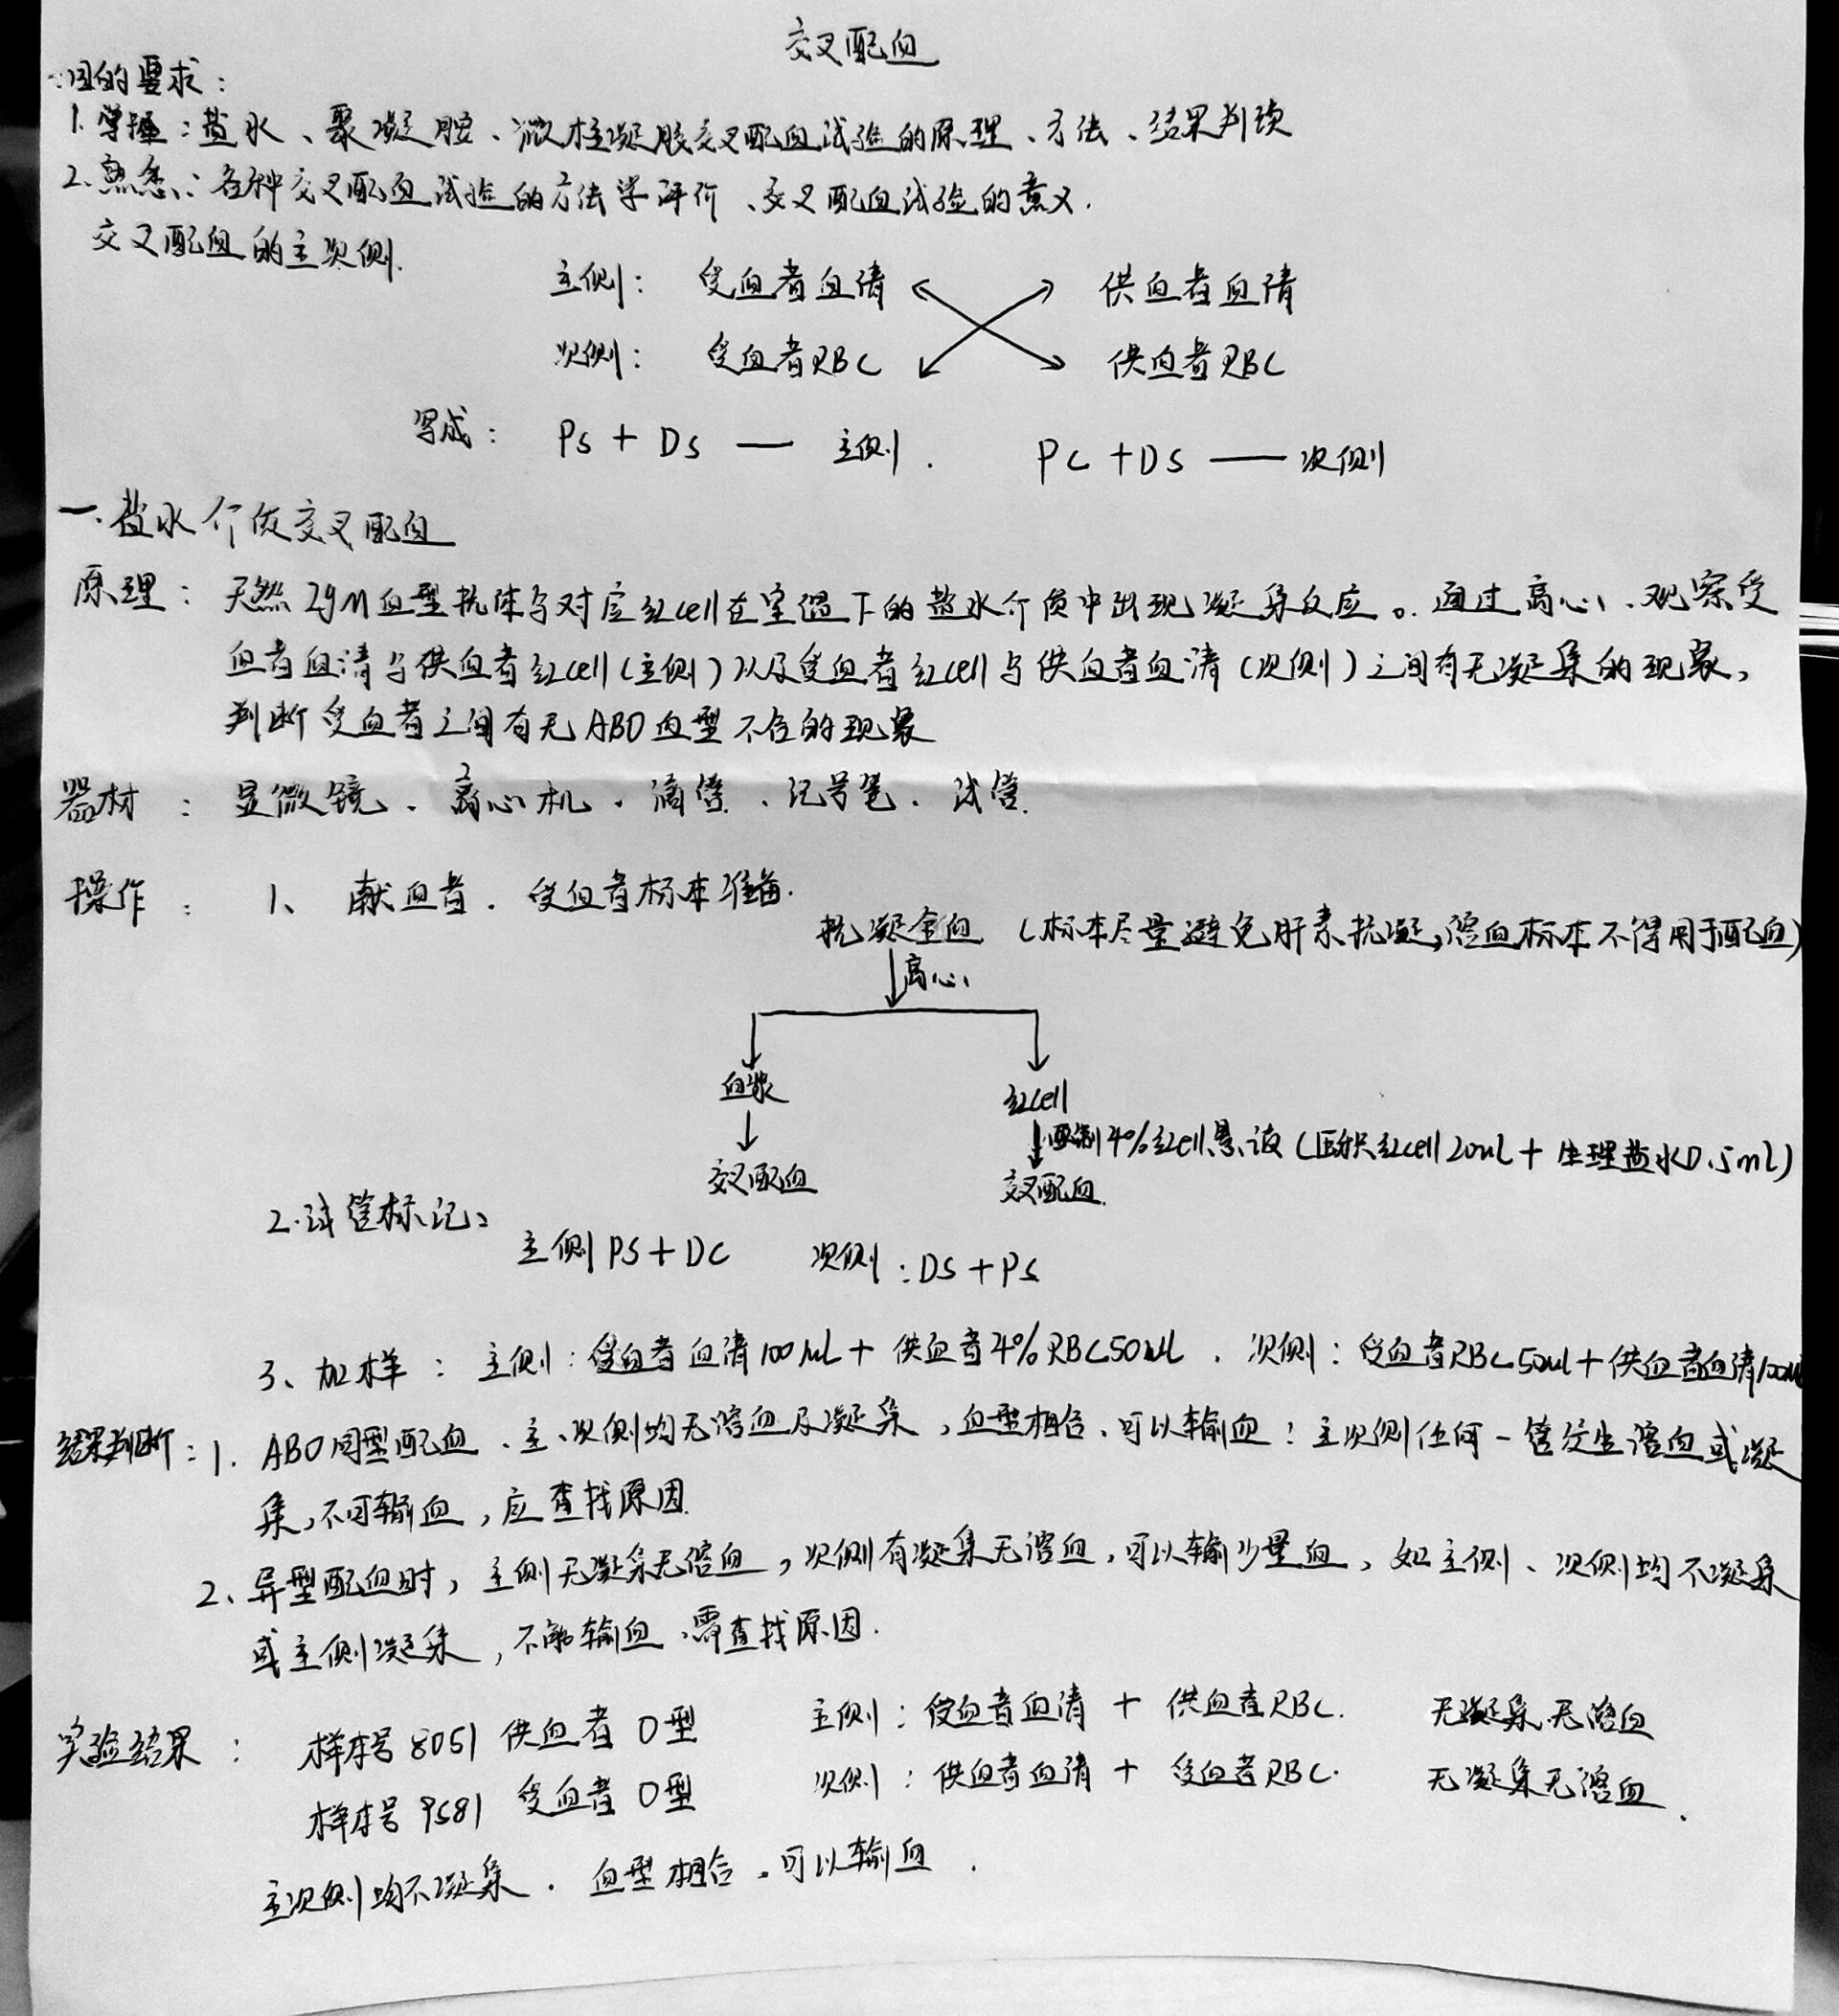 交叉配血
目的要求：
1.掌握：盐水、聚凝胺、微柱凝胶交叉配血试验的原理、方法、结果判读
2.熟悉：各种交叉配血试验的方法学评价、交叉配血试验的意义.
交叉配血的主次侧.
主侧： 受血者血清 供血者血清
次侧： 受血者RBC 供血者RBC
写成： PS + DS — 主侧. PC + DS — 次侧
一.盐水介质交叉配血
原理： 天然IgM血型抗体与对应红cell在室温下的盐水介质中出现凝集反应。通过离心、观察受
血者血清与供血者红cell(主侧)以及受血者红cell与供血者血清(次侧)之间有无凝集的现象，
判断受血者之间有无ABO血型不合的现象
器材： 显微镜、离心机、滴管、记号笔、试管.
操作： 1、献血者.受血者标本准备.
抗凝全血 (标本尽量避免肝素抗凝，溶血标本不得用于配血)
离心
血浆 红cell
配制4%红cell悬液(压积红cell 20ul + 生理盐水0.5ml)
交叉配血 交叉配血.
2.试管标记：
主侧PS + DC 次侧：DS + PS
3、加样： 主侧：受血者血清100ul + 供血者4%RBC50ul. 次侧：受血者RBC50ul + 供血者血清100ul
结果判断：1. ABO同型配血、主、次侧均无溶血及凝集，血型相合、可以输血；主次侧任何一管发生溶血或凝
集，不可输血，应查找原因.
2、异型配血时，主侧无凝集无溶血，次侧有凝集无溶血，可以输少量血，如主侧、次侧均不凝集
或主侧凝集，不能输血、需查找原因.
实验结果： 样本号8051 供血者 O型 主侧：受血者血清 + 供血者RBC. 无凝集无溶血
样本号9581 受血者 O型 次侧：供血者血清 + 受血者RBC. 无凝集无溶血.
主次侧均不凝集.血型相合.可以输血.